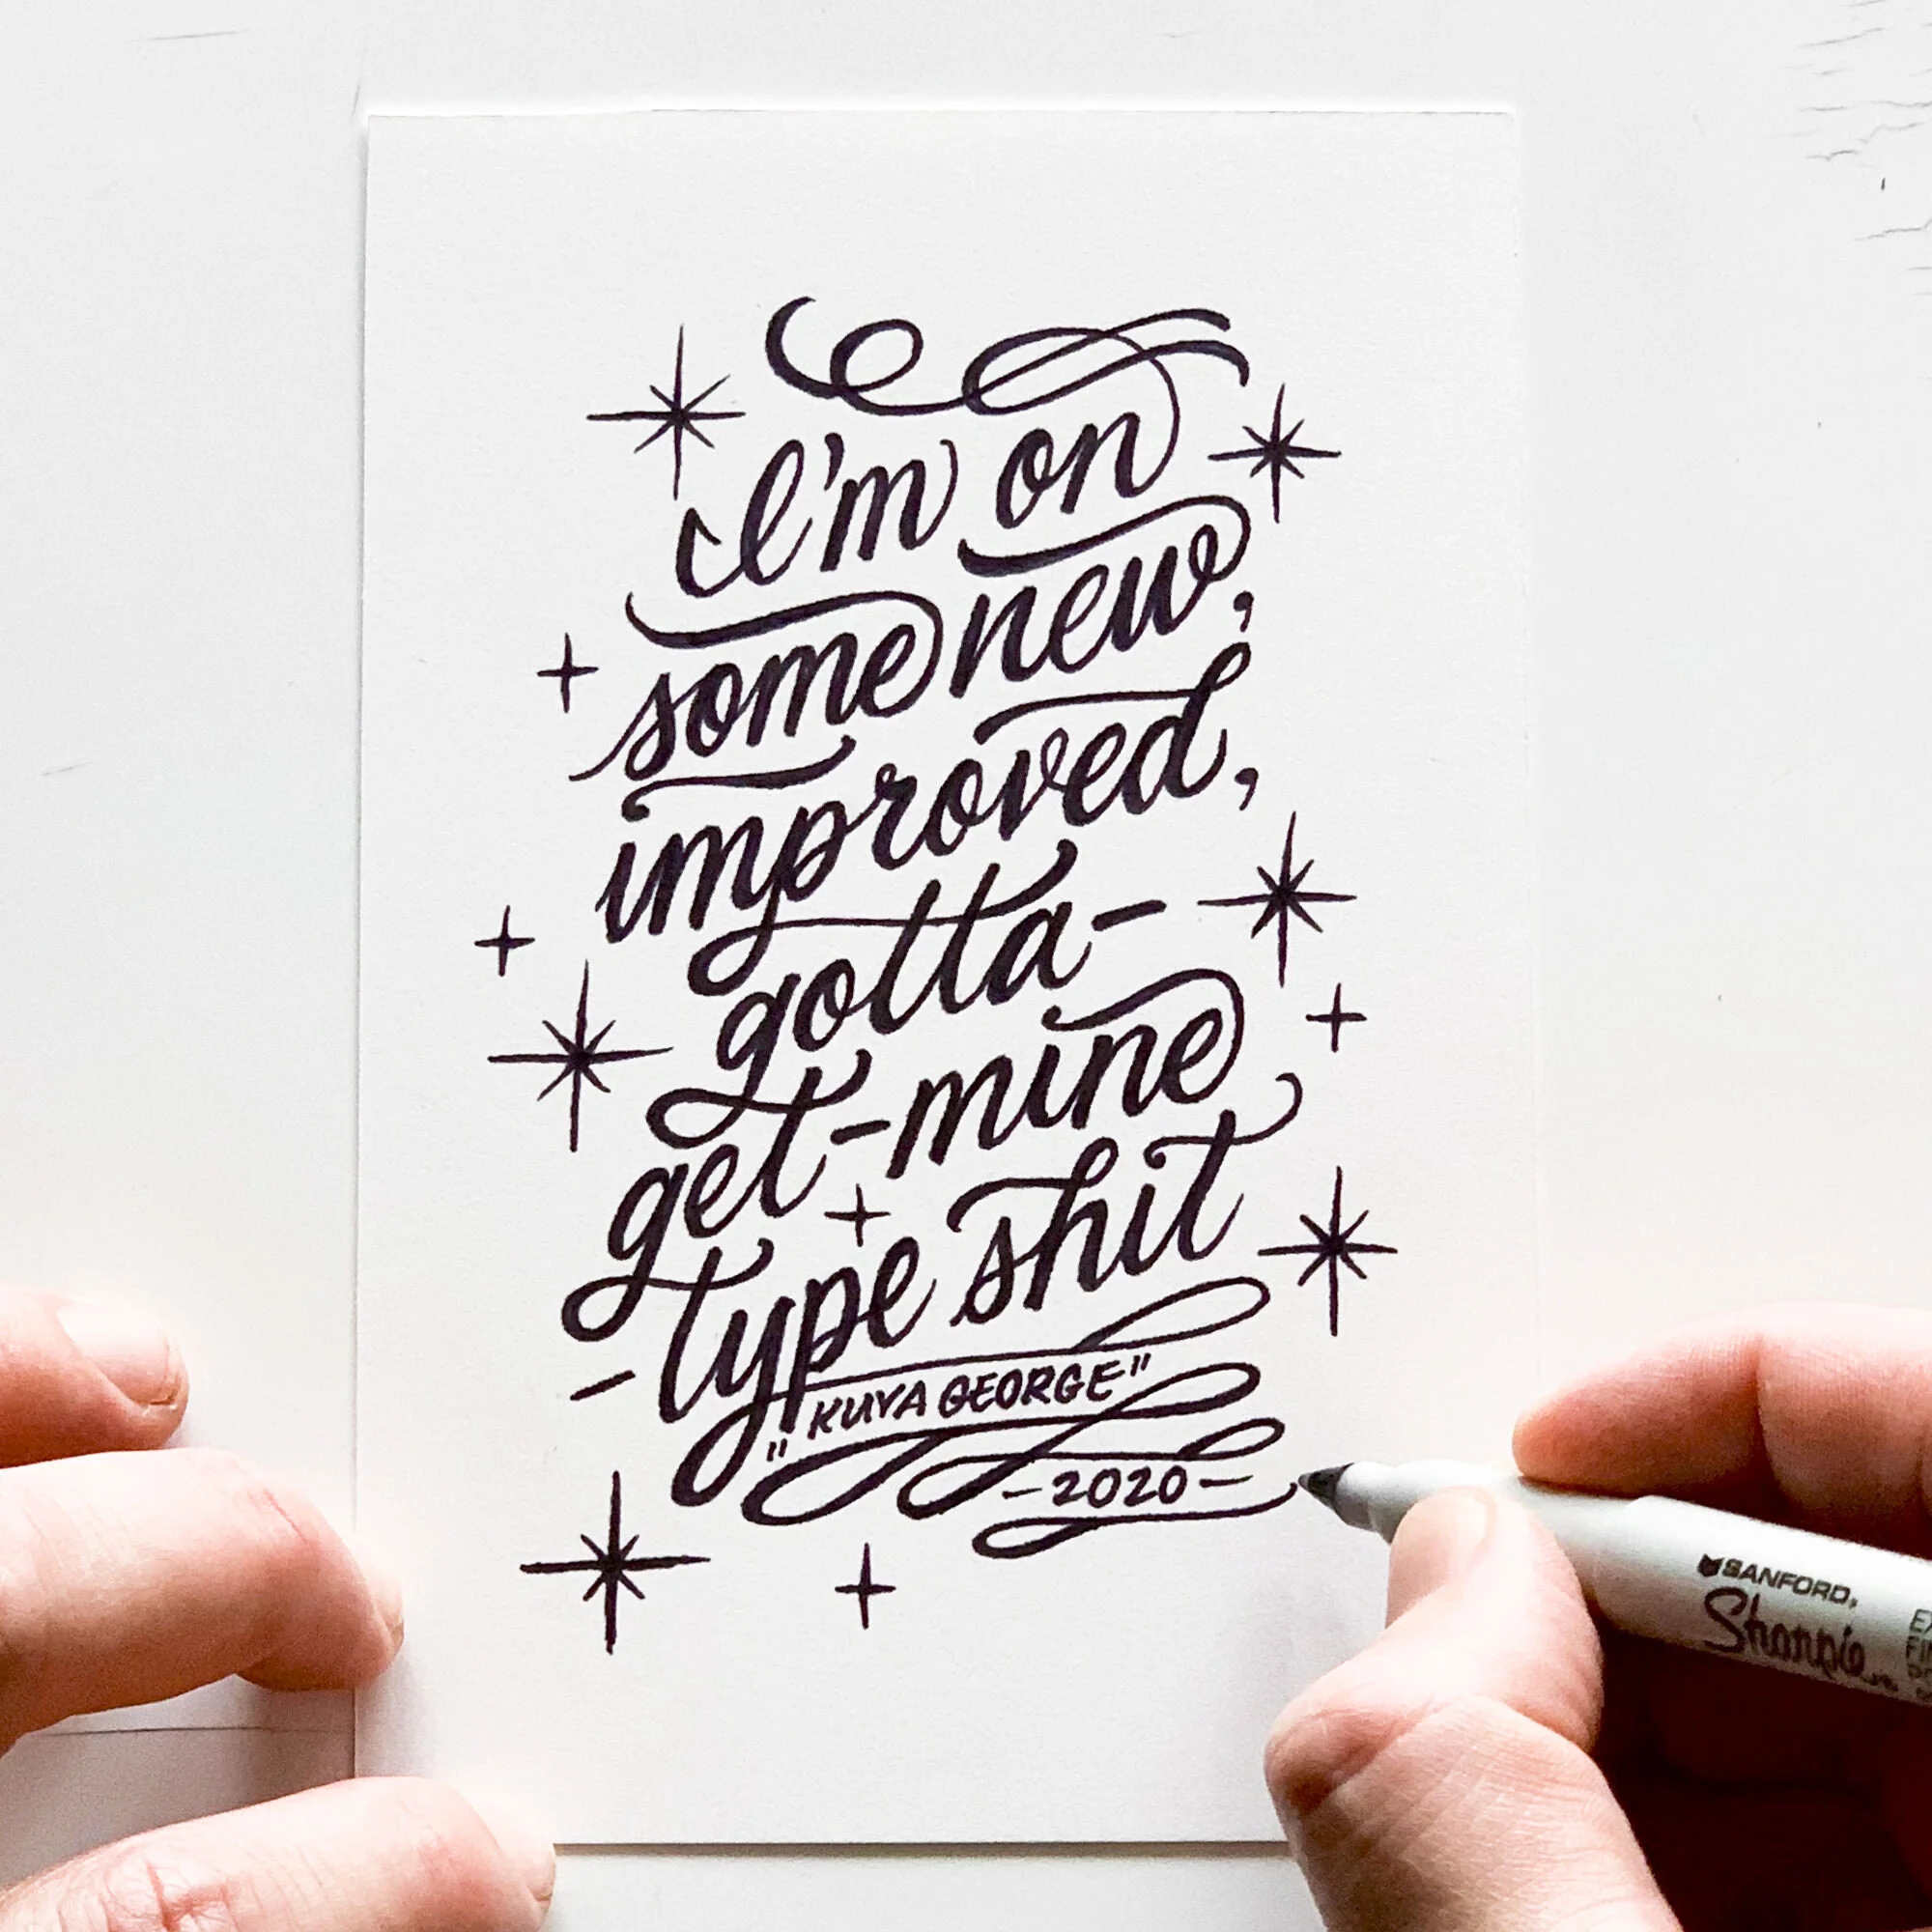 I'm on
some new,
improved,
gotta-
get-mine
-type shit
"KUYA GEORGE"
-2020-
SANFORD
Sharpie